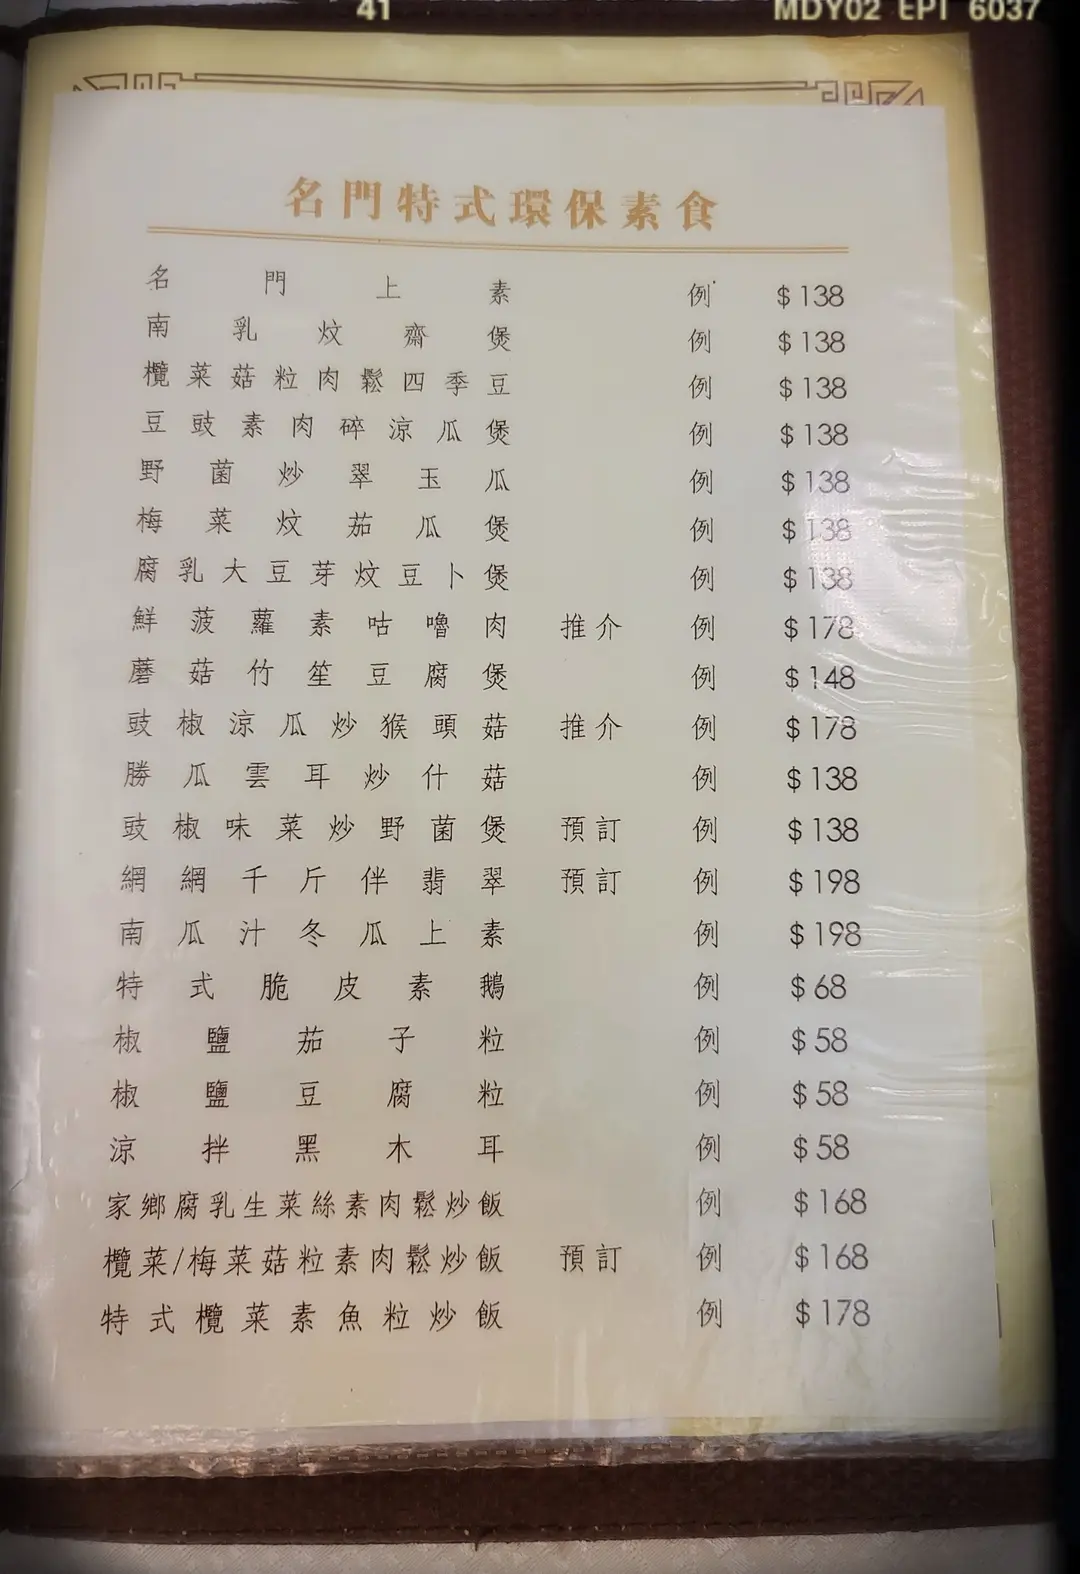 41 MDY02 EPI 6037
名門特式環保素食
名門上素 例 $138
南乳炆齋煲 例 $138
欖菜菇粒肉鬆四季豆 例 $138
豆豉素肉碎涼瓜煲 例 $138
野菌炒翠玉瓜 例 $138
梅菜炆茄瓜煲 例 $138
腐乳大豆芽炆豆卜煲 例 $138
鮮菠蘿素咕嚕肉 推介 例 $178
蘑菇竹笙豆腐煲 例 $148
豉椒涼瓜炒猴頭菇 推介 例 $178
勝瓜雲耳炒什菇 例 $138
豉椒味菜炒野菌煲 預訂 例 $138
網網千斤伴翡翠 預訂 例 $198
南瓜汁冬瓜上素 例 $198
特式脆皮素鵝 例 $68
椒鹽茄子粒 例 $58
椒鹽豆腐粒 例 $58
涼拌黑木耳 例 $58
家鄉腐乳生菜絲素肉鬆炒飯 例 $168
欖菜/梅菜菇粒素肉鬆炒飯 預訂 例 $168
特式欖菜素魚粒炒飯 例 $178